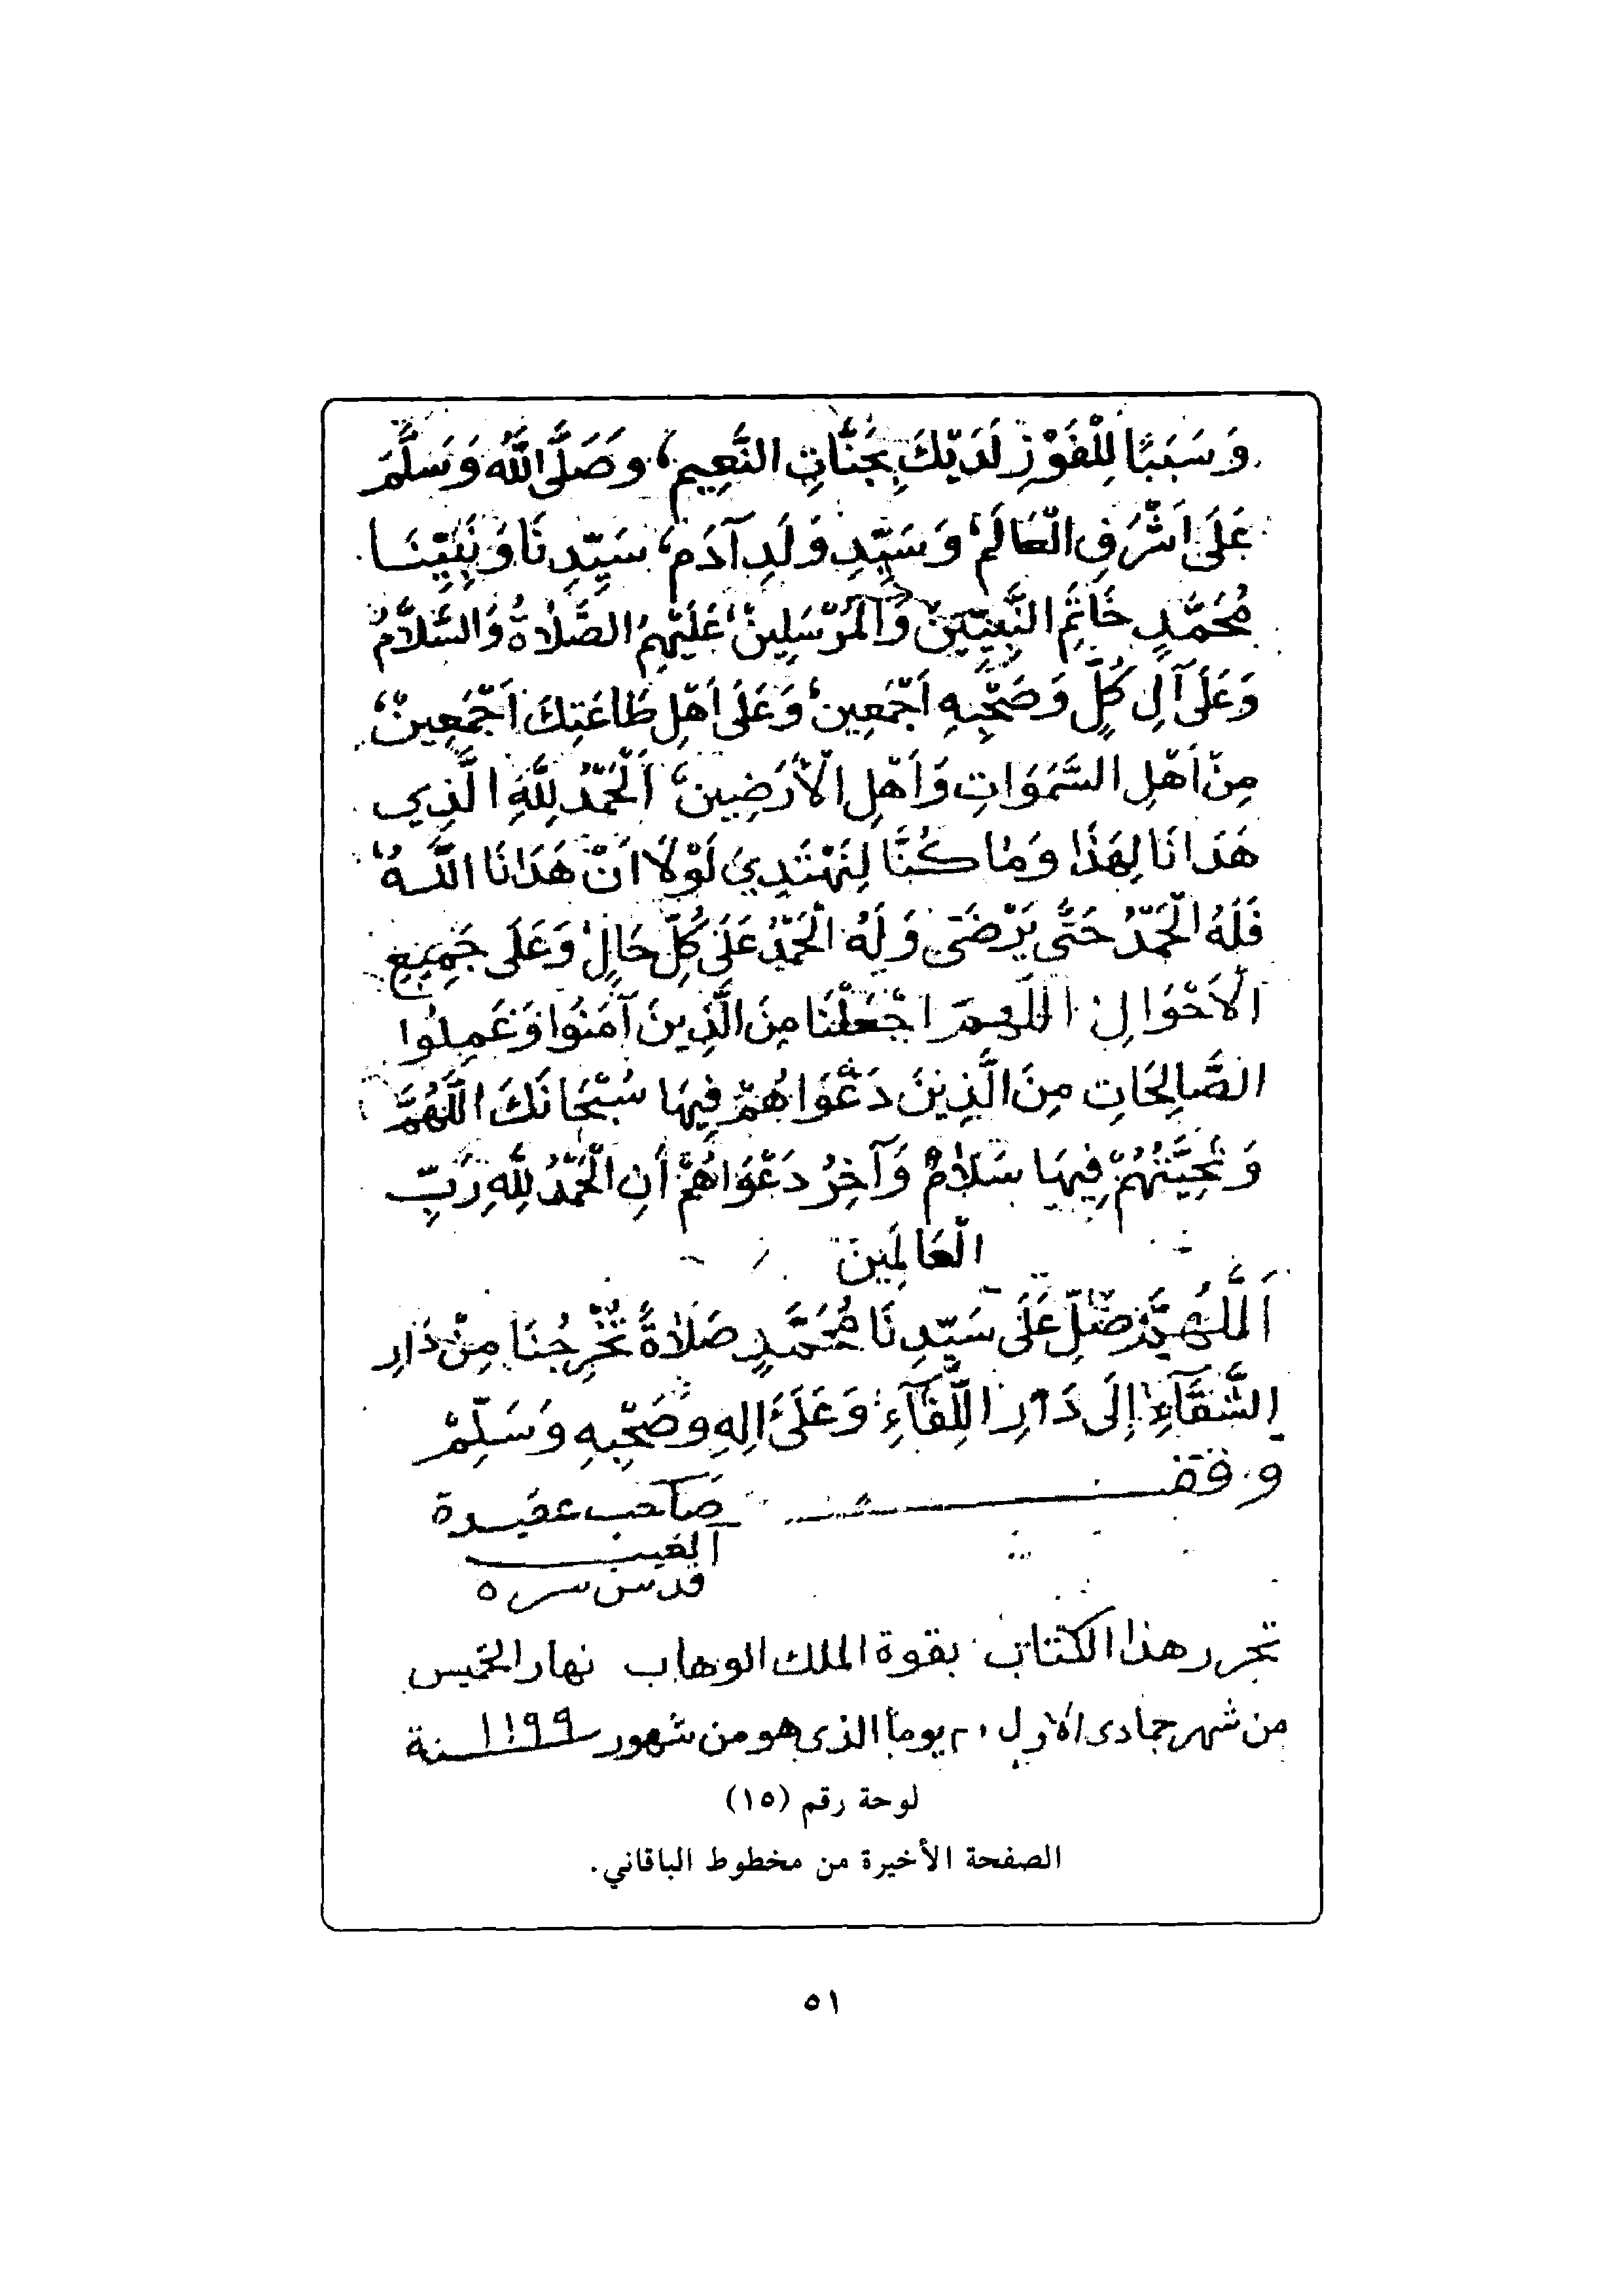 وَسَبَبًا لِلْفَوْزِ لَدَيْكَ بِجَنَّاتِ النَّعِيمِ، وَصَلَّى اللَّهُ وَسَلَّمَ
عَلَى اَشْرَفِ الْعَالَمِ، وَسَيِّدِ وَلَدِ آدَمَ، سَيِّدِنَا وَنَبِيِّنَا
مُحَمَّدٍ خَاتَمِ النَّبِيِّينَ وَالْمُرْسَلِينَ، عَلَيْهِمُ الصَّلَاةُ وَالسَّلَامُ
وَعَلَى آلِ كُلٍّ وَصَحْبِهِ اَجْمَعِينَ، وَعَلَى اَهْلِ طَاعَتِكَ اَجْمَعِينَ،
مِنْ اَهْلِ السَّمَوَاتِ وَاَهْلِ الْأَرَضِينَ، اَلْحَمْدُ لِلَّهِ الَّذِي
هَدَانَا لِهَذَا وَمَا كُنَّا لِنَهْتَدِيَ لَوْلَا اَنْ هَدَانَا اللَّهُ،
فَلَهُ الْحَمْدُ حَتَّى يَرْضَى وَلَهُ الْحَمْدُ عَلَى كُلِّ حَالٍ، وَعَلَى جَمِيعِ
الْأَحْوَالِ اللَّهُمَّ اجْعَلْنَا مِنَ الَّذِينَ آمَنُوا وَعَمِلُوا
الصَّالِحَاتِ مِنَ الَّذِينَ دَعْوَاهُمْ فِيهَا سُبْحَانَكَ اللَّهُمَّ
وَتَحِيَّتُهُمْ فِيهَا سَلَامٌ وَآخِرُ دَعْوَاهُمْ أَنِ الْحَمْدُ لِلَّهِ رَبِّ
الْعَالَمِينَ
اَللَّهُمَّ صَلِّ عَلَى سَيِّدِنَا مُحَمَّدٍ صَلَاةً تُخْرِجُنَا مِنْ دَارِ
الشَّقَآءِ إِلَى دَارِ اللِّقَآءِ وَعَلَى اٰلِهِ وَصَحْبِهِ وَسَلِّمْ
صاحب عقيدة
الغيب
قدس سره
تحرر هذا الكتاب بقوة الملك الوهاب نهار الخميس
من شهر جمادى الاول يوما الذى هو من شهور سنة ١١٩٩
لوحة رقم (١٥)
الصفحة الأخيرة من مخطوط الباقاني.
٥١